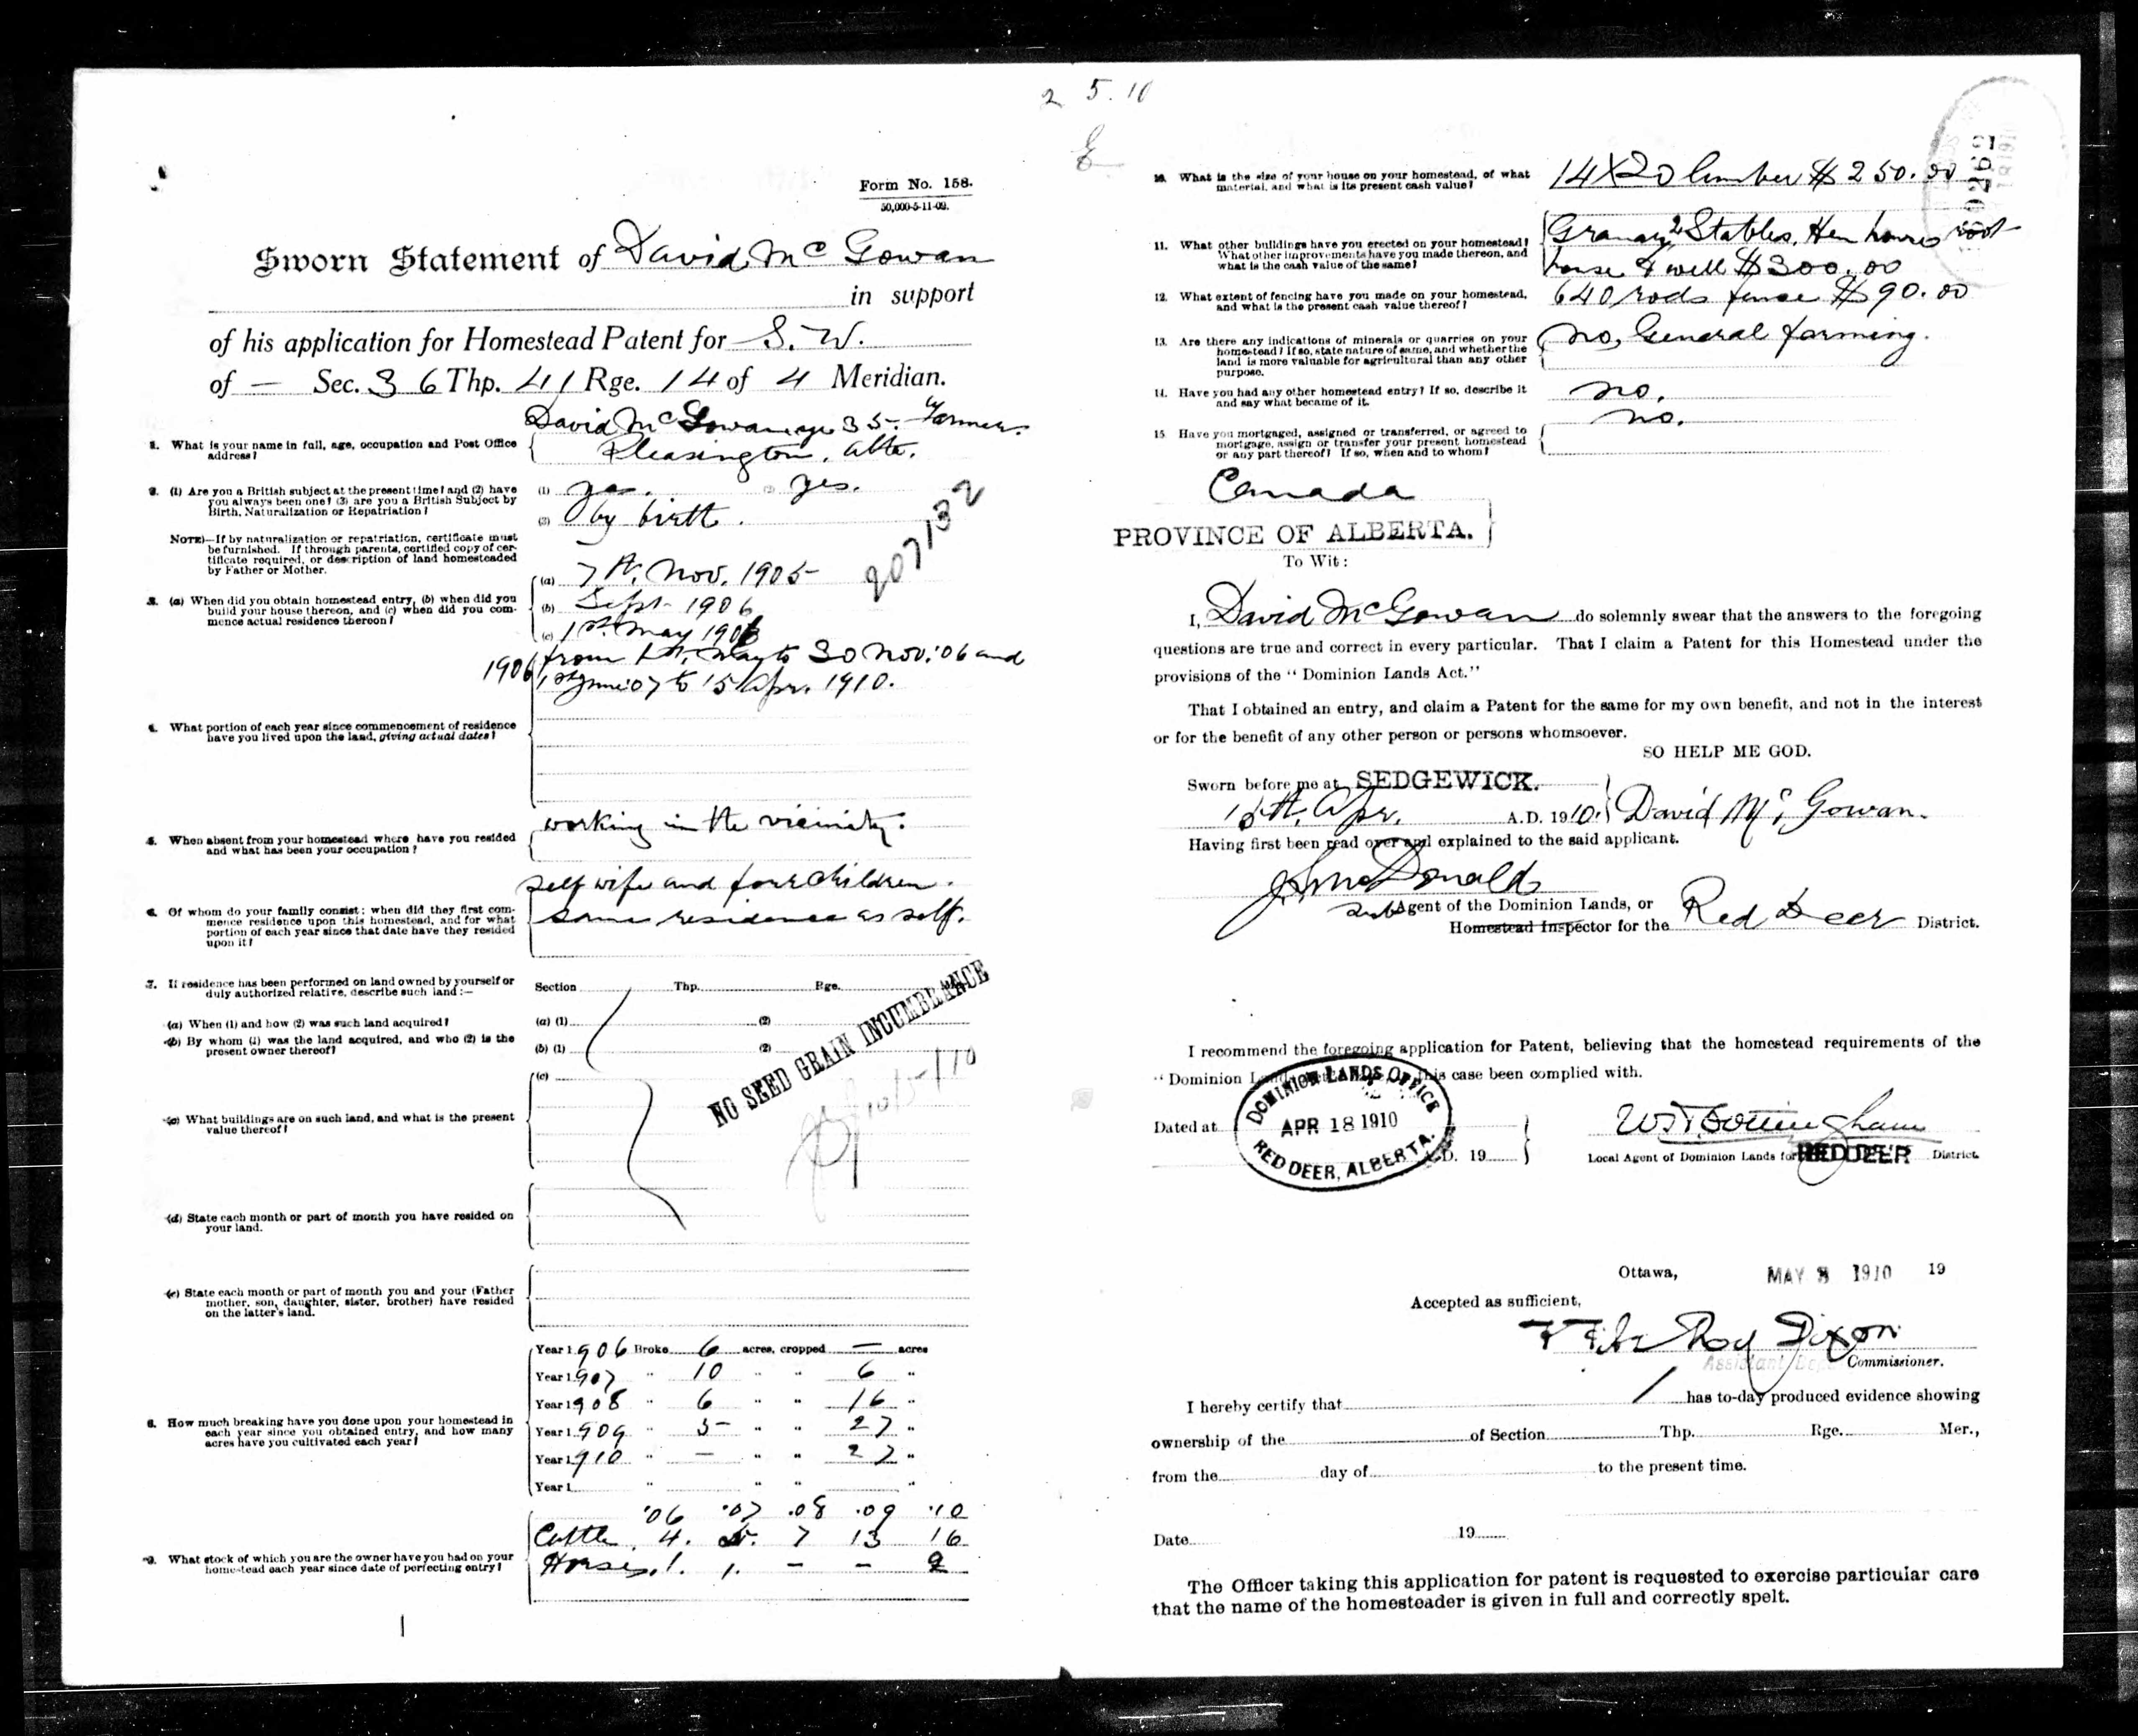 2 5.10
Form No. 158.
50,000-5-11-09.
Sworn Statement of David Mc Gowan
in support
of his application for Homestead Patent for S. W.
of — Sec. 36 Thp. 41 Rge. 14 of 4 Meridian.
1. What is your name in full, age, occupation and Post Office
address?
David McGowan age 35. Farmer.
Pleasington, Alta.
2. (1) Are you a British subject at the present time? and (2) have
you always been one? (3) are you a British Subject by
Birth, Naturalization or Repatriation?
(1) yes. (2) yes.
(3) by birth.
NOTE)—If by naturalization or repatriation, certificate must
be furnished. If through parents, certified copy of cer-
tificate required, or description of land homesteaded
by Father or Mother.
207132
3. (a) When did you obtain homestead entry, (b) when did you
build your house thereon, and (c) when did you com-
mence actual residence thereon?
(a) 7th. Nov. 1905
(b) Sept. 1906
(c) 1st. May 1906
1906 from 1st. May to 30 Nov. '06 and
1st June '07 to 15 Apr. 1910.
4. What portion of each year since commencement of residence
have you lived upon the land, giving actual dates?
5. When absent from your homestead where have you resided
and what has been your occupation?
working in the vicinity.
6. Of whom do your family consist; when did they first com-
mence residence upon this homestead, and for what
portion of each year since that date have they resided
upon it?
self wife and four children.
same residence as self.
7. If residence has been performed on land owned by yourself or
duly authorized relative, describe such land:—
Section Thp. Rge.
(a) When (1) and how (2) was such land acquired?
(a) (1) (2)
(b) By whom (1) was the land acquired, and who (2) is the
present owner thereof?
(b) (1) (2)
NO SEED GRAIN INCUMBRANCE
(c)
(c) What buildings are on such land, and what is the present
value thereof?
(d) State each month or part of month you have resided on
your land.
(e) State each month or part of month you and your (Father
mother, son, daughter, sister, brother) have resided
on the latter's land.
8. How much breaking have you done upon your homestead in
each year since you obtained entry, and how many
acres have you cultivated each year?
Year 1906 Broke 6 acres, cropped — acres
Year 1907 " 10 " " 6 "
Year 1908 " 6 " " 16 "
Year 1909 " 5 " " 27 "
Year 1910 " — " " 27 "
Year 1 " " " "
'06 '07 .08 .09 '10
Cattle. 4. 5. 7 13 16
Horses. 1. 1. – – 2
9. What stock of which you are the owner have you had on your
homestead each year since date of perfecting entry?
10. What is the size of your house on your homestead, of what
material, and what is its present cash value?
14X20 lumber $250.00
11. What other buildings have you erected on your homestead?
What other improvements have you made thereon, and
what is the cash value of the same?
Granary 2 Stables, Hen house root
house & well $300.00
12. What extent of fencing have you made on your homestead,
and what is the present cash value thereof?
640 rods fence $90.00
13. Are there any indications of minerals or quarries on your
homestead? If so, state nature of same, and whether the
land is more valuable for agricultural than any other
purpose.
no, General farming.
14. Have you had any other homestead entry? If so, describe it
and say what became of it.
no.
15 Have you mortgaged, assigned or transferred, or agreed to
mortgage, assign or transfer your present homestead
or any part thereof? If so, when and to whom?
no.
Canada
PROVINCE OF ALBERTA.
To Wit:
I, David McGowan do solemnly swear that the answers to the foregoing
questions are true and correct in every particular. That I claim a Patent for this Homestead under the
provisions of the "Dominion Lands Act."
That I obtained an entry, and claim a Patent for the same for my own benefit, and not in the interest
or for the benefit of any other person or persons whomsoever.
SO HELP ME GOD.
Sworn before me at SEDGEWICK.
15th. Apr. A.D. 1910. David Mc Gowan.
Having first been read over and explained to the said applicant.
McDonald
Sub Agent of the Dominion Lands, or
Homestead Inspector for the Red Deer District.
I recommend the foregoing application for Patent, believing that the homestead requirements of the
"Dominion Lands Act" have in this case been complied with.
DOMINION LANDS OFFICE
APR 18 1910
RED DEER, ALBERTA.
Dated at A.D. 19
Local Agent of Dominion Lands for RED DEER District.
Ottawa, MAY 3 1910 19
Accepted as sufficient,
Fitz Roy Dixon
Commissioner.
I hereby certify that has to-day produced evidence showing
ownership of the of Section Thp. Rge. Mer.,
from the day of to the present time.
Date 19
The Officer taking this application for patent is requested to exercise particular care
that the name of the homesteader is given in full and correctly spelt.